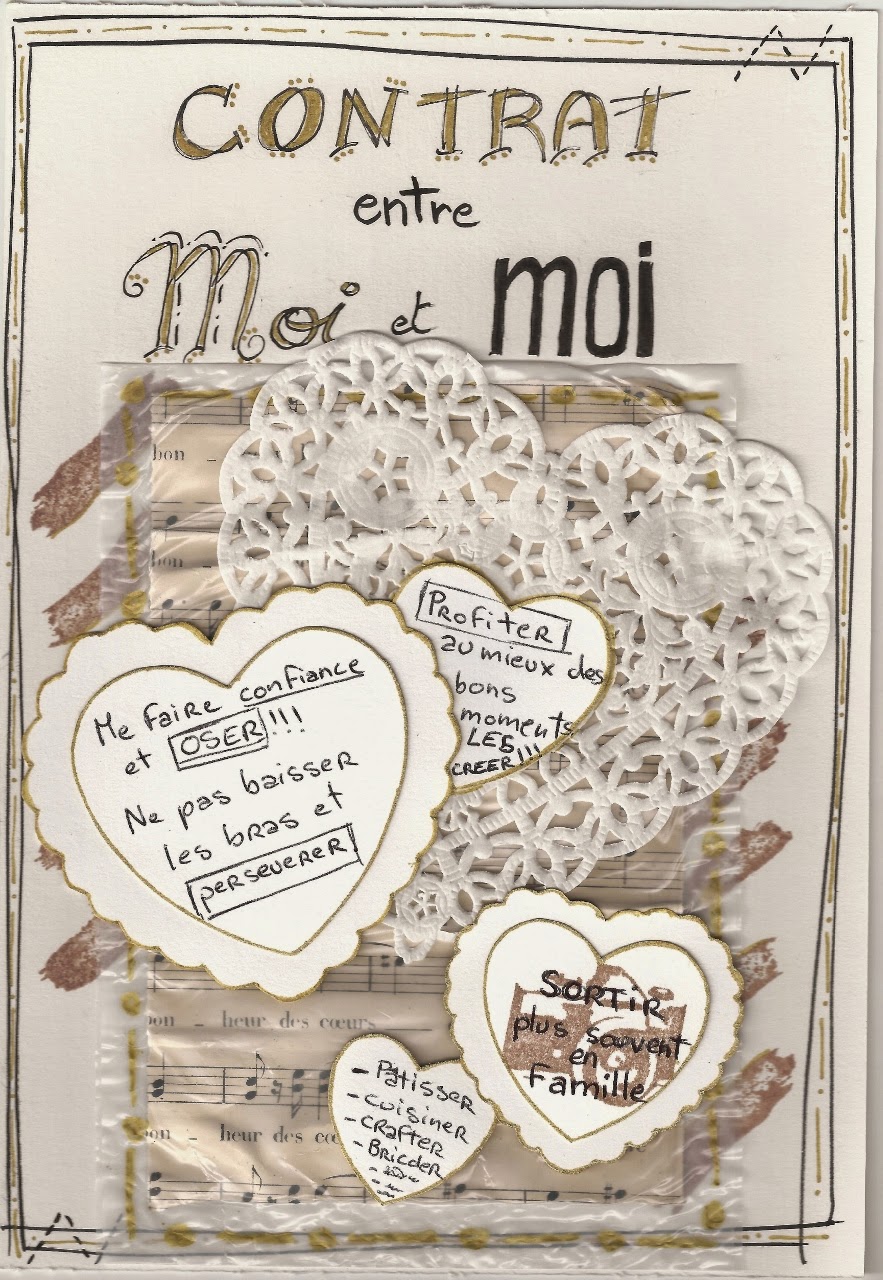 CONTRAT
entre
Moi et moi
bon -
bon
Profiter
au mieux des
bons
moments
LES
CREER!!!
Me faire confiance
et OSER!!!
Ne pas baisser
les bras et
perseverer
SORTIR
plus souvent
en
famille
bon - heur des cœurs
- Patisser
- Cuisiner
- Crafter
- Bricoler
bon - heur des cœ